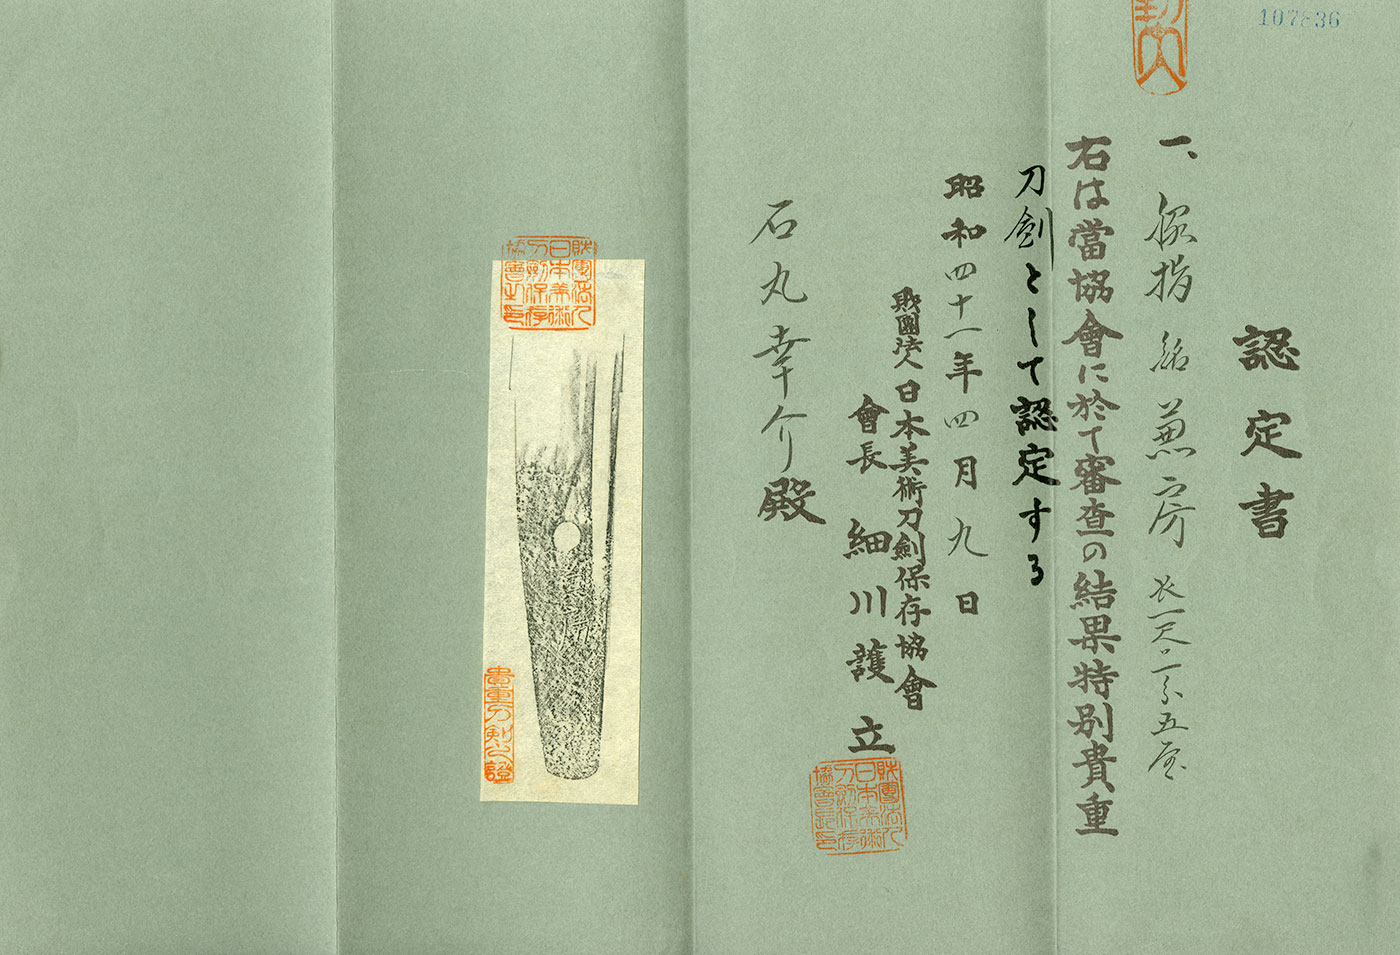 107836
認定書
一、脇指 銘 兼房 長一尺一分五厘
右は當協會に於て審査の結果特別貴重
刀劍として認定する
昭和四十一年四月九日
財團法人日本美術刀劍保存協會
會長 細川護立
石丸幸介殿
財團法人日本美術刀劍保存協會長印
財團法人日本美術刀劍保存協會之印
貴重刀剣之證